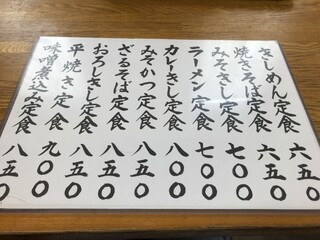 きしめん定食 六五〇
焼きそば定食 六五〇
みそきし定食 七〇〇
ラーメン定食 七〇〇
カレーきし定食 八〇〇
みそかつ定食 八五〇
ざるそば定食 八五〇
おろしきし定食 八五〇
平焼き定食 九〇〇
味噌煮込み定食 八五〇